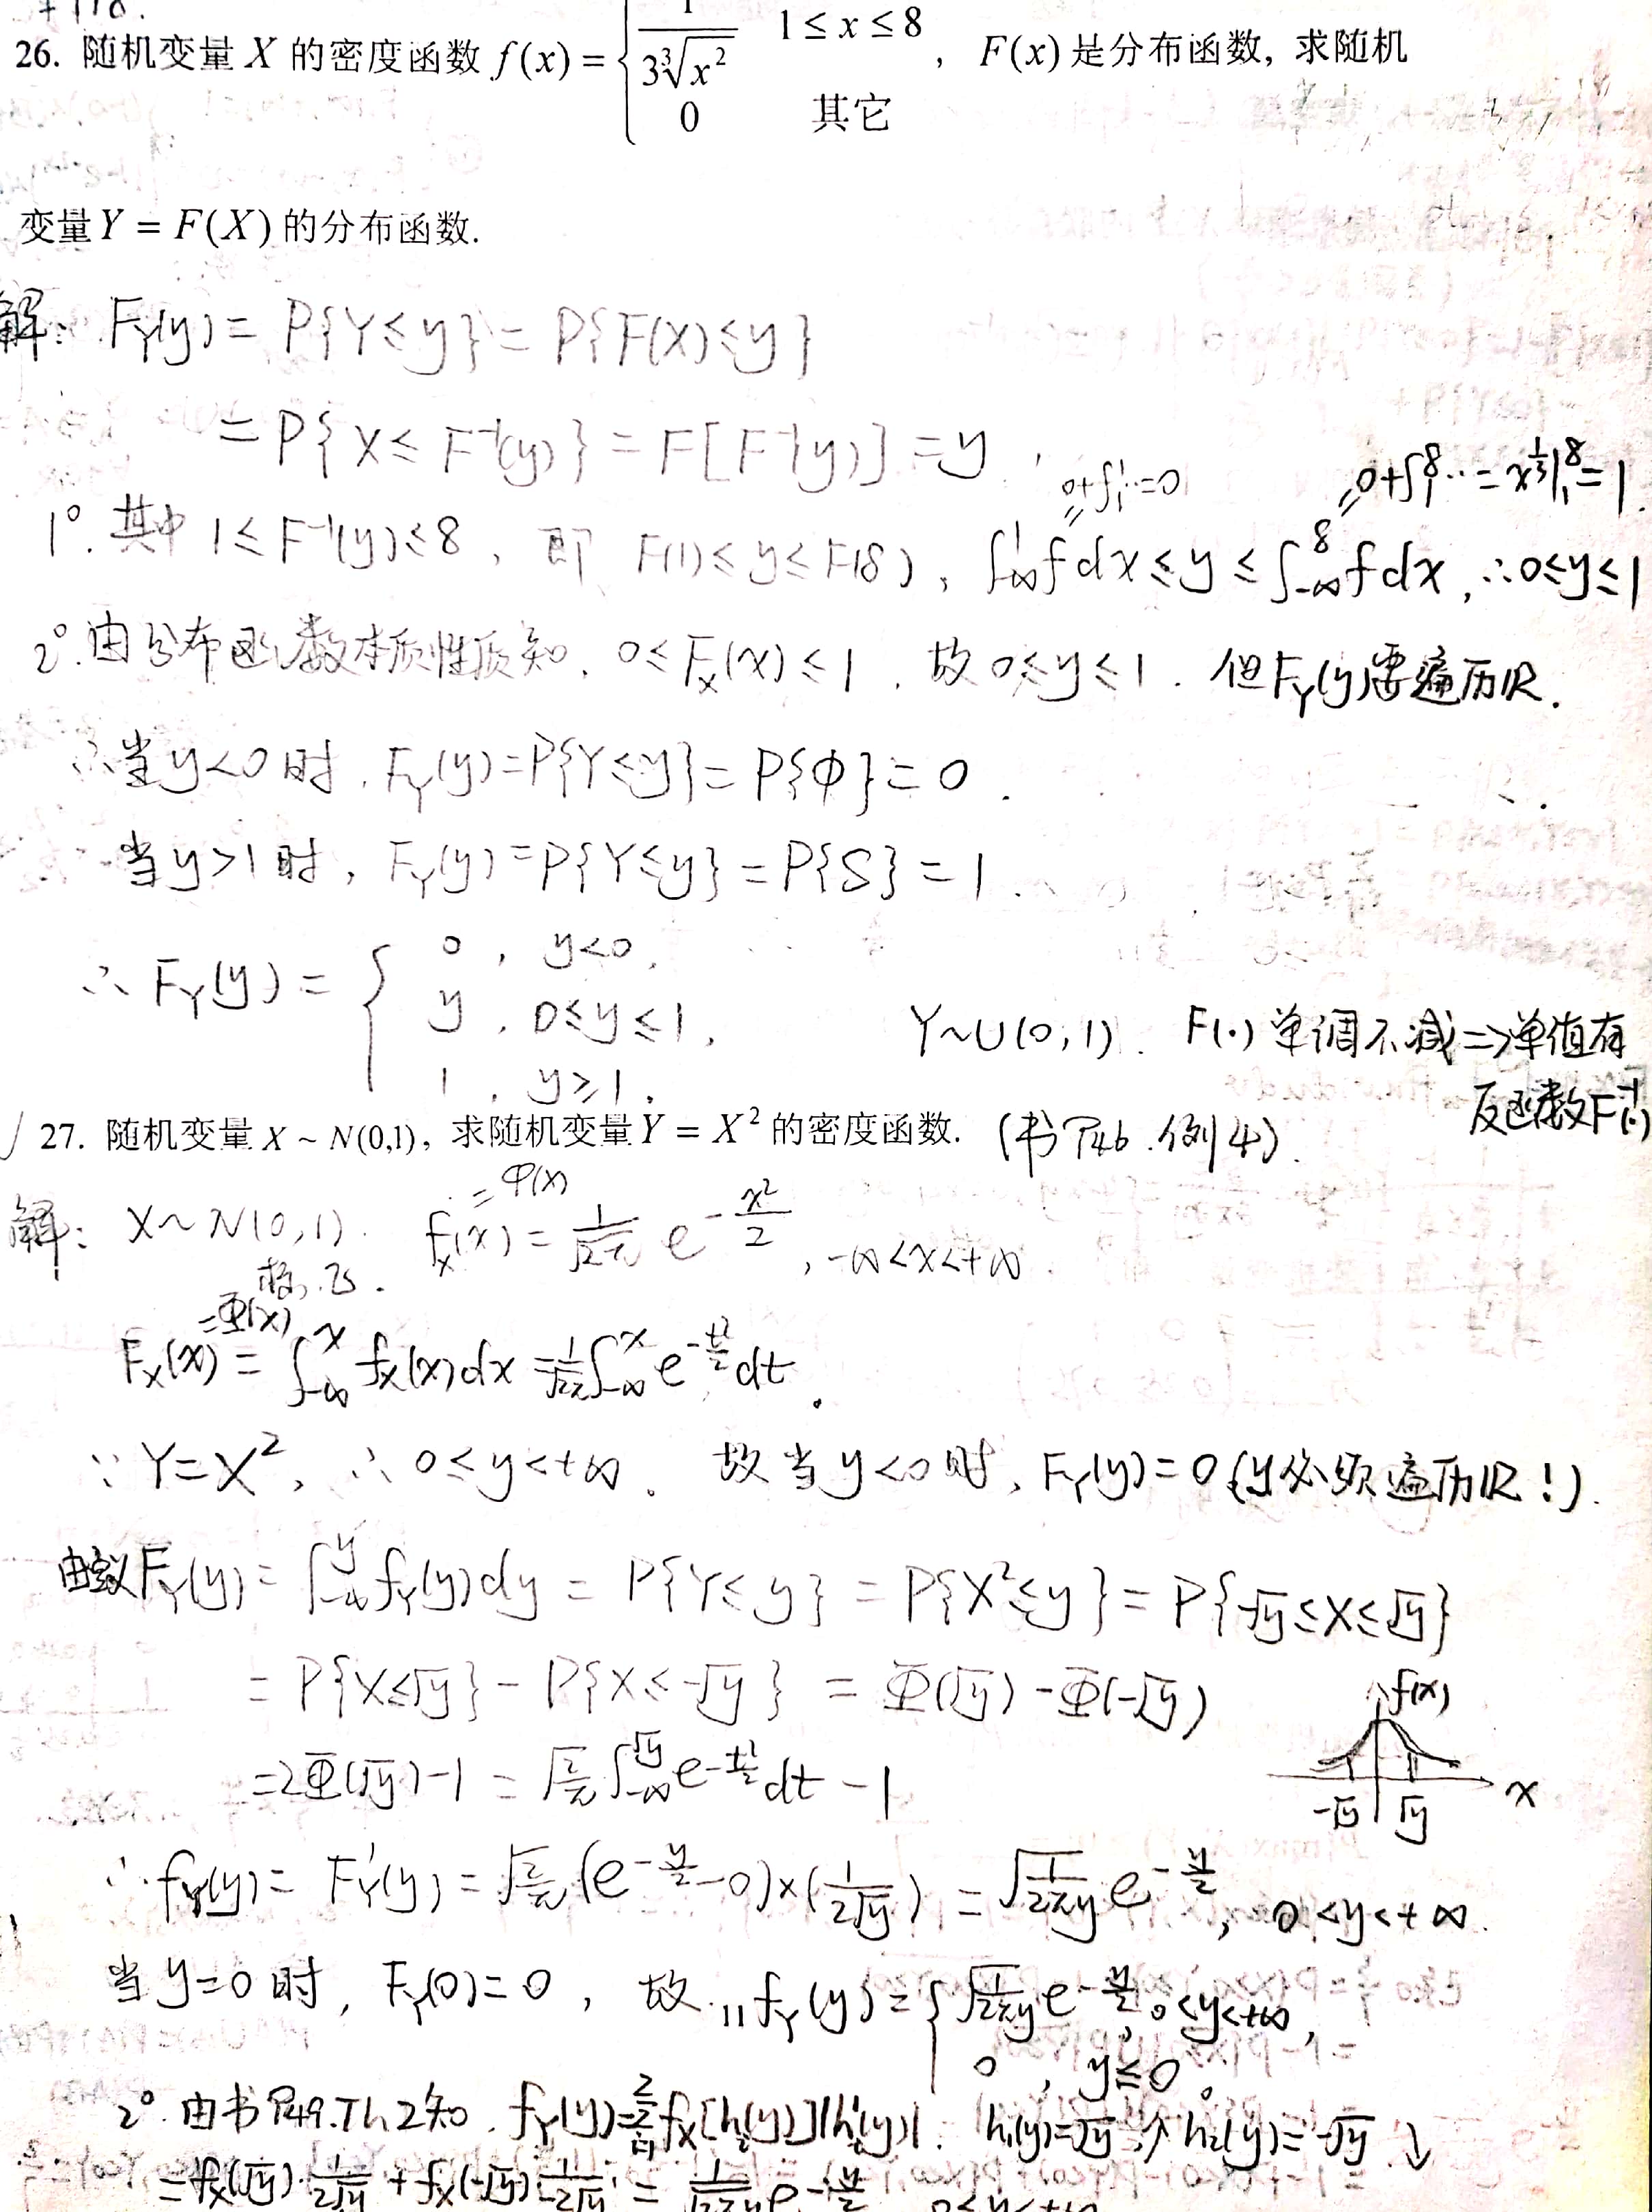 26. 随机变量 X 的密度函数 f(x) = { 1/(3∛x²)  1 ≤ x ≤ 8 , F(x) 是分布函数, 求随机
0  其它
变量 Y = F(X) 的分布函数.
解: F_Y(y) = P{Y≤y} = P{F(X)≤y}
= P{X≤F⁻¹(y)} = F[F⁻¹(y)] = y
0+∫₁¹…=0   0+∫₁⁸…= x^(1/3)|₁⁸ = 1.
1°. 其中 1≤F⁻¹(y)≤8, 即 F(1)≤y≤F(8), ∫_{-∞}^1 f dx ≤ y ≤ ∫_{-∞}^8 f dx, ∴0≤y≤1
2°. 由分布函数本质性质知, 0≤F_X(x)≤1, 故 0≤y≤1. 但F_Y(y)要遍历R.
∴当y<0时, F_Y(y)=P{Y≤y}=P{φ}=0.
当y>1时, F_Y(y)=P{Y≤y}=P{S}=1.
∴ F_Y(y) = { 0, y<0,
y, 0≤y≤1,   Y~U(0,1). F(·)单调不减⇒单值有
1, y≥1.   反函数F⁻¹(·)
√ 27. 随机变量 X ~ N(0,1), 求随机变量 Y = X² 的密度函数. (书P46.例4).
=φ(x)
解: X~N(0,1). f_X(x) = 1/√2π e^(-x²/2), -∞<x<+∞
=Φ(x)
F_X(x) = ∫_{-∞}^x f_X(x)dx = 1/√2π ∫_{-∞}^x e^(-t²/2) dt.
∵ Y=X², ∴ 0≤y<+∞. 故当y<0时, F_Y(y)=0 (y必须遍历R!).
由定义F_Y(y) = ∫_{-∞}^y f_Y(y)dy = P{Y≤y} = P{X²≤y} = P{-√y≤X≤√y}
= P{X≤√y} - P{X≤-√y} = Φ(√y) - Φ(-√y)
f(x)
= 2Φ(√y)-1 = √(2/π) ∫_{-∞}^{√y} e^(-t²/2) dt - 1
x
-√y √y
∴ f_Y(y) = F'_Y(y) = √(2/π) (e^(-y/2) - 0)×(1/(2√y)) = √(1/(2πy)) e^(-y/2), 0<y<+∞.
当y=0时, F_Y(0)=0, 故 f_Y(y) = { √(1/(2πy)) e^(-y/2), 0<y<+∞,
0, y≤0.
2°. 由书P49.Th2知, f_Y(y)=Σ_{i=1}^2 f_X[h_i(y)]|h_i'(y)|. h₁(y)=√y↗ h₂(y)=-√y↓
= f_X(√y)·1/(2√y) + f_X(-√y)·1/(2√y) = 1/√(2πy) e^(-y/2) 0<y<+∞